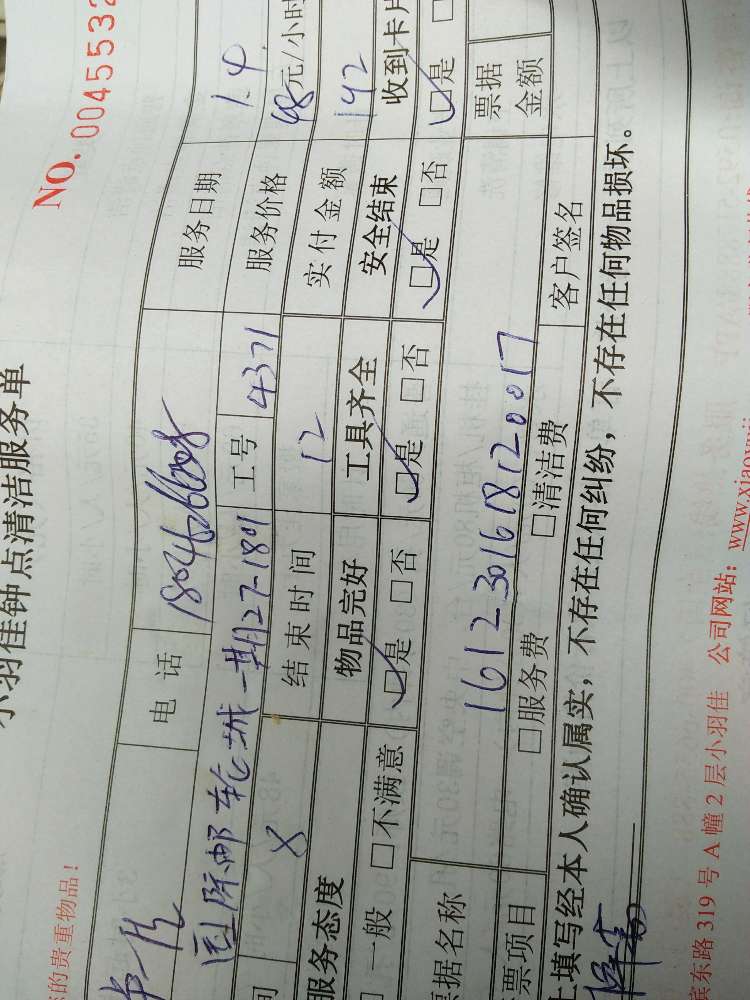 NO. 0045532
小羽佳钟点清洁服务单
的贵重物品!
电话 服务日期 1.4
国际邮轮城一期27-1801 工号 4371 服务价格 48元/小时
间 8 结束时间 12 实付金额 192
服务态度 物品完好 工具齐全 安全结束 收到卡片
□一般 □不满意 □是 □否 □是 □否 □是 □否 □是
票据名称 1612301618120017 票据金额
票项目 □服务费 □清洁费 客户签名
上填写经本人确认属实,不存在任何纠纷,不存在任何物品损坏。
滨东路 319 号 A 幢 2 层小羽佳 公司网站:www.xiaoyuj